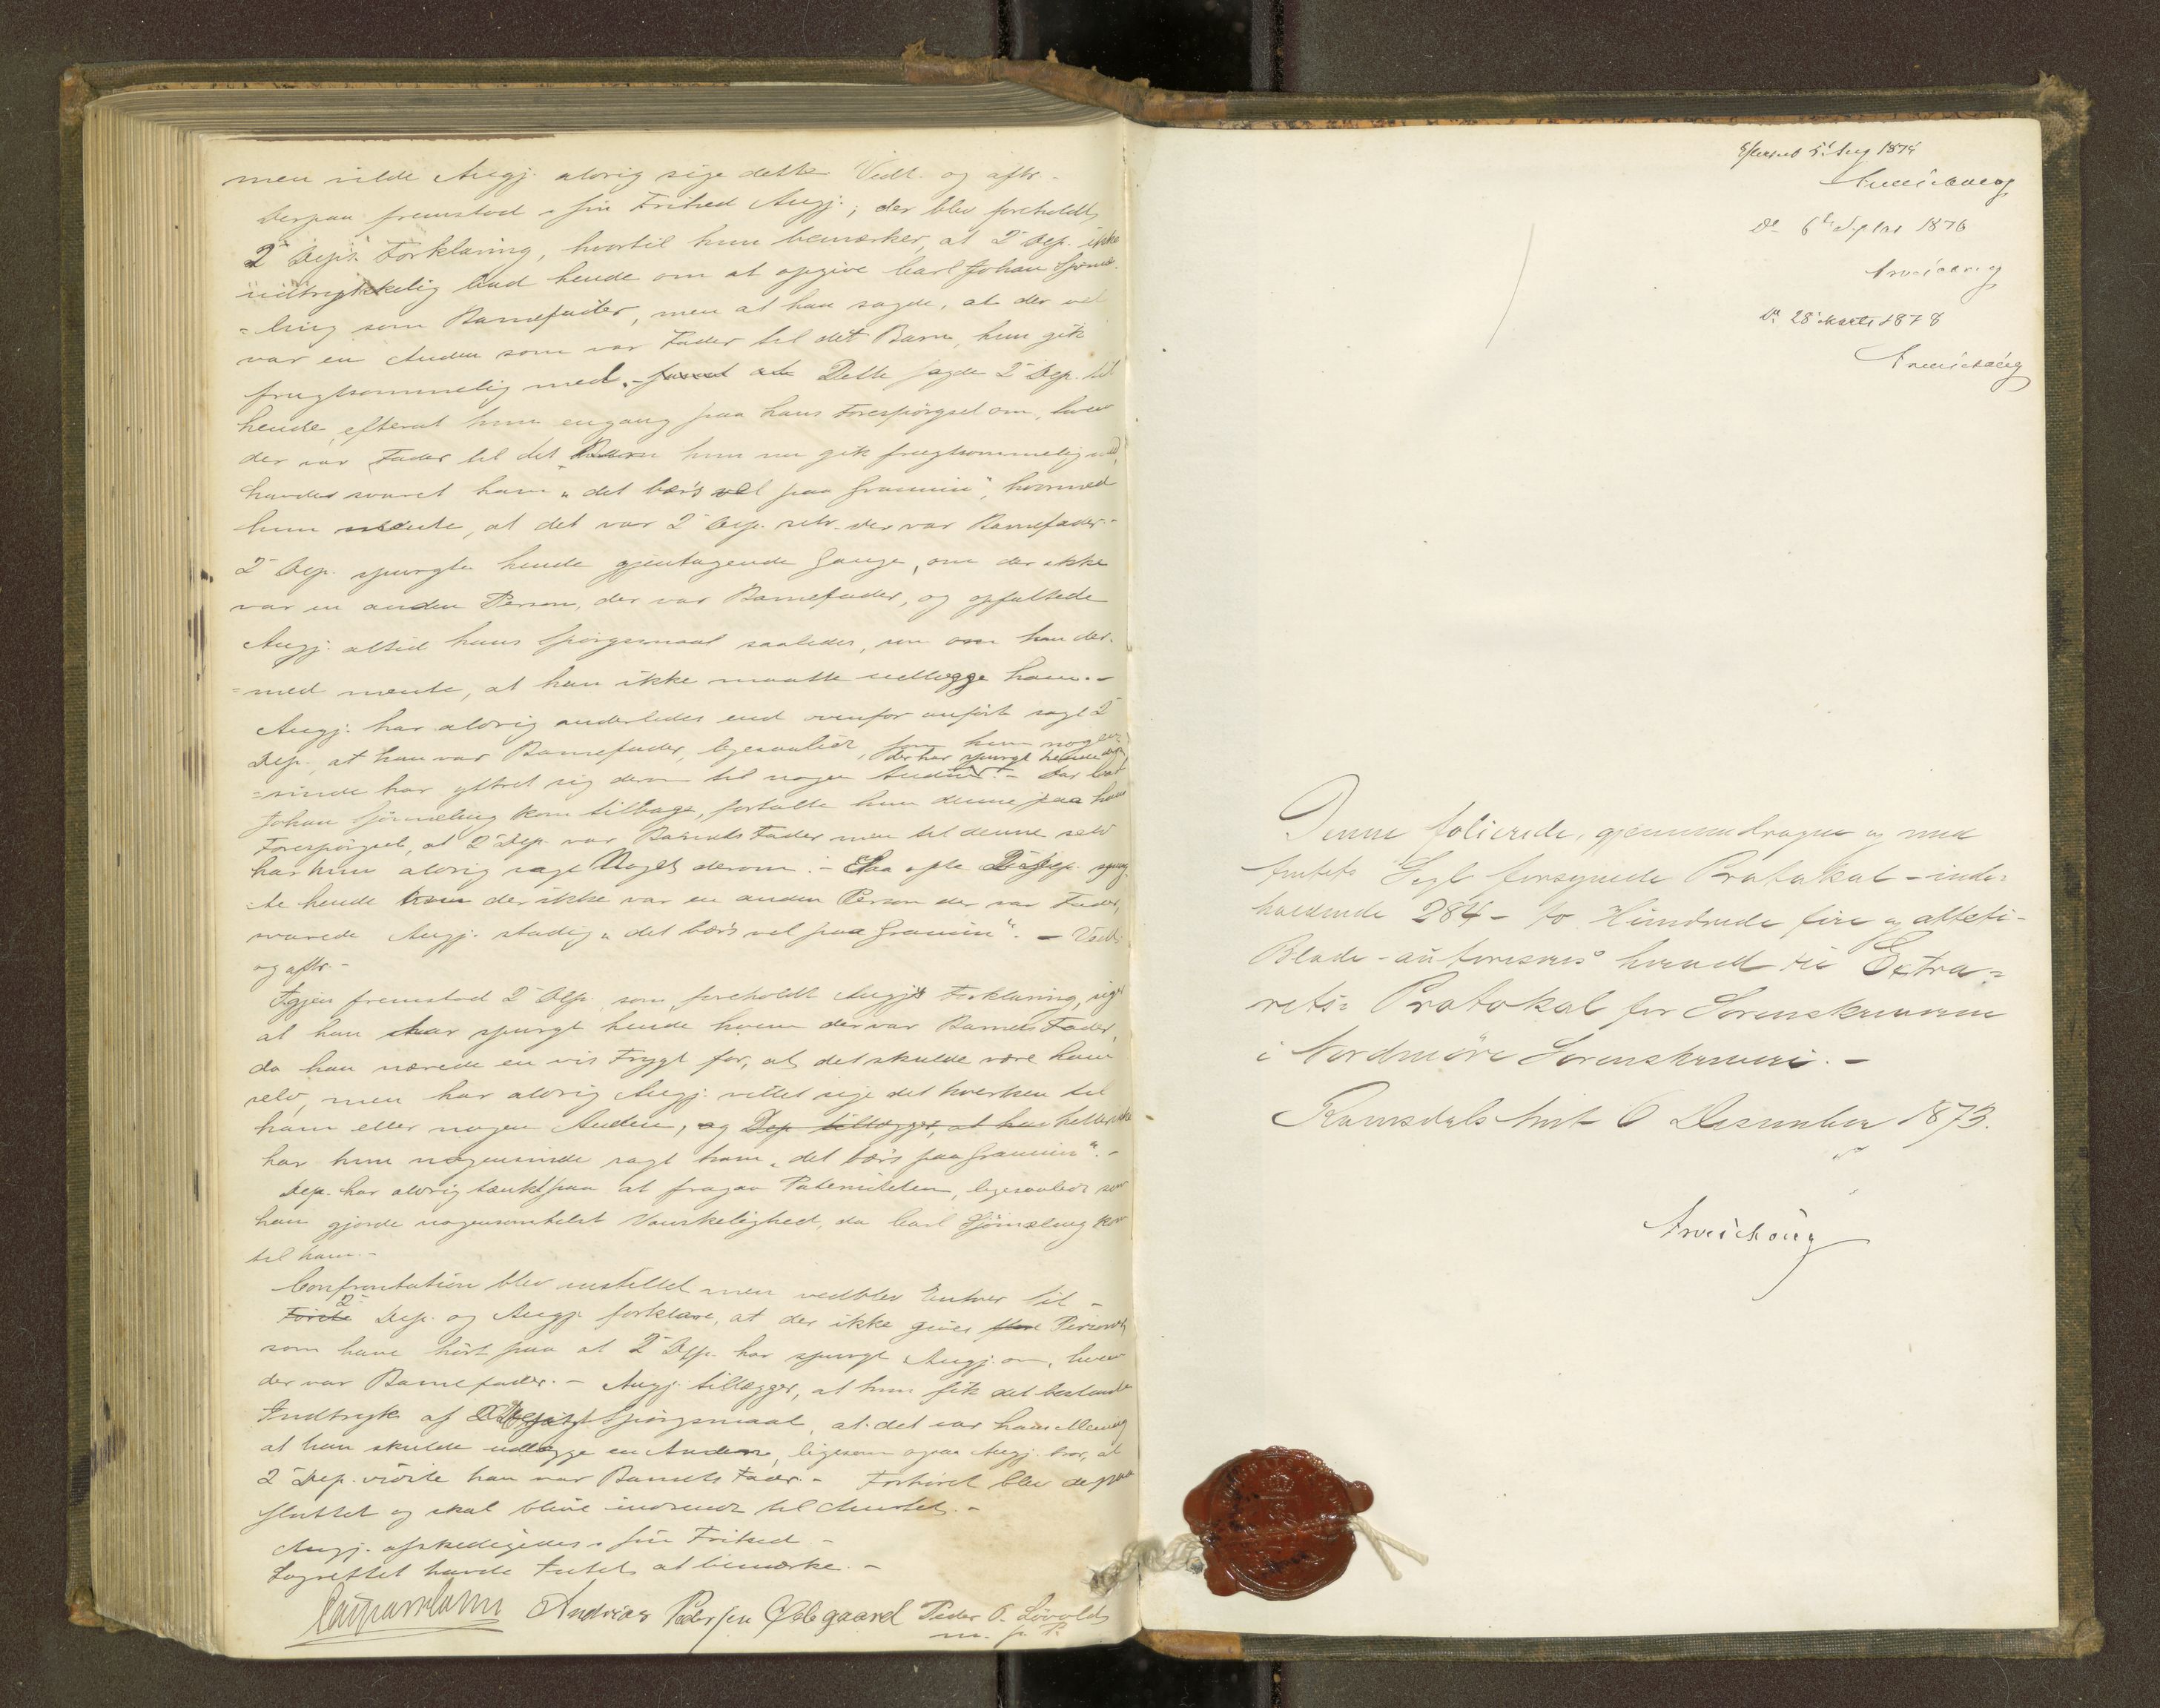 men vilde Angj. aldrig sige dette Vedt. og aftr. -
Derpaa fremstod i sin Frihed Angj.; der blev foreholdt
2 Dep's Forklaring, hvortil hun bemærker, at 2 Dep. ikke
udtrykkelig bad hende om at opgive Carl Johan Sjømæ-
=ling som Barnefader, men at han sagde, at der vel
var en Anden som var Fader til det Barn, hun gik
frugtsommelig med. - Dette sagde 2 Dep. til
hende, efterat hun engang paa hans Forespørgsel om, hvem
der var Fader til det Barn hun nu gik frugtsommelig med,
havde svaret ham "det bær's vel paa Grannin", hvormed
hun mente, at det var 2 Dep. selv der var Barnefader. -
2 Dep. spurgte hende gjentagende Gange, om der ikke
var en anden Person, der var Barnefader, og opfattede
Angj. altid hans Spørgsmaal saaledes, som om han der-
=med mente, at hun ikke maatte udlægge ham. -
Angj. har aldrig anderledes end ovenfor anført sagt 2
Dep., at han var Barnefader, ligesaalidt, som hun nogen-
=sinde har yttret sig derom til nogen Anden, der har spurgt hende derom. - Da Carl
Johan Sjømæling kom tilbage, fortalte hun denne paa hans
Forespørgsel, at 2 Dep. var Barnets Fader men til denne selv
har hun aldrig sagt Noget derom. - Saa ofte 2 Dep. spurg-
te hende om der ikke var en anden Person der var Fader,
svarede Angj. stadig "det bær's vel paa Grannin". - Vedt.
og aftr. -
Igjen fremstod 2 Dep. som foreholdt Angj's Forklaring, siger
at han har spurgt hende hvem der var Barnets Fader,
da han nærede en vis Frygt for, at det skulde være ham
selv, men har aldrig Angj. villet sige det hverken til
ham eller nogen Anden, og Dep. tillægger, at hun heller ikke
har hun nogensinde sagt ham "det bær's paa Grannin". -
Dep. har aldrig tænkt paa at fragaa Paterniteten, ligesaalidt som
han gjorde nogensomhelst Vanskelighed, da Carl Sjømæling kom
til ham. -
Confrontation blev anstillet men vedblev Enhver sit -
Første 2 Dep. og Angj. forklare, at der ikke gives flere Personer,
som have hørt paa at 2 Dep. har spurgt Angj. om, hvem
der var Barnefader. - Angj. tillægger, at hun fik det bestemte
Indtryk af Spørgsmaal, at det var hans Mening
at hun skulde udlægge en Anden, ligesom ogsaa Angj. tror, at
2 Dep. vidste han var Barnets Fader. - Forhøret blev derpaa
sluttet og skal blive indsendt til Amtet. -
Angj. afskedigedes i sin Frihed -
Lagrettet havde Intet at bemærke. -
Andreas Pedersen Ødegaard Peder O. Løvold
m. p. P.
Efterseet 5' Aug 1874
D° 6te Septbr 1876
D° 28 Marts 1878
Denne folierede, gjennemdragne og med
Amtets Segl forsynede Protokol - inde-
holdende 284 - to Hundrede fire og otteti -
Blade - autoriseres herved til Extra-
rets- Protokol for Sorenskriveren
i Nordmøre Sorenskriveri. -
Romsdals Amt 6 Desember 1873.